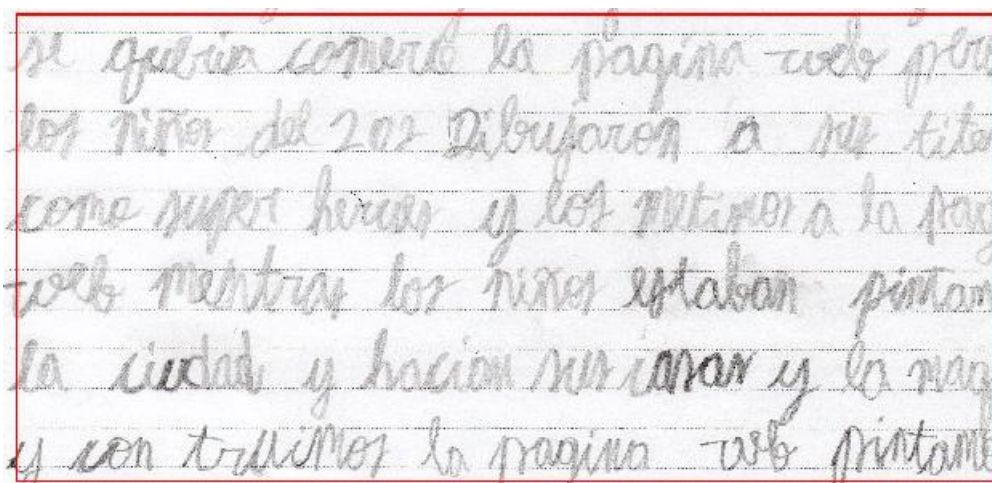 se queria comerse la pagina web pero
los niños del 202 Dibujaron a sus titer
como super heroes y los metimos a la pag
web mentras los niños estaban pintan
la ciudad y hacian sus casas y la maq
y con truimos la pagina web pintam